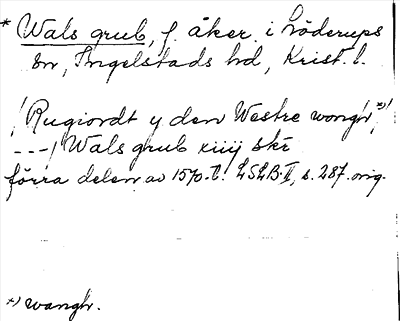 * Wals grub, f. åker i Löderups
sn, Ingelstads hd, Krist. l.
/ Rugiordt y den Westre wongh *)/
---/ Wals grub xiiij skr
förra delen av 1570-t. LSLB II, s. 287. orig.
*) wangh.